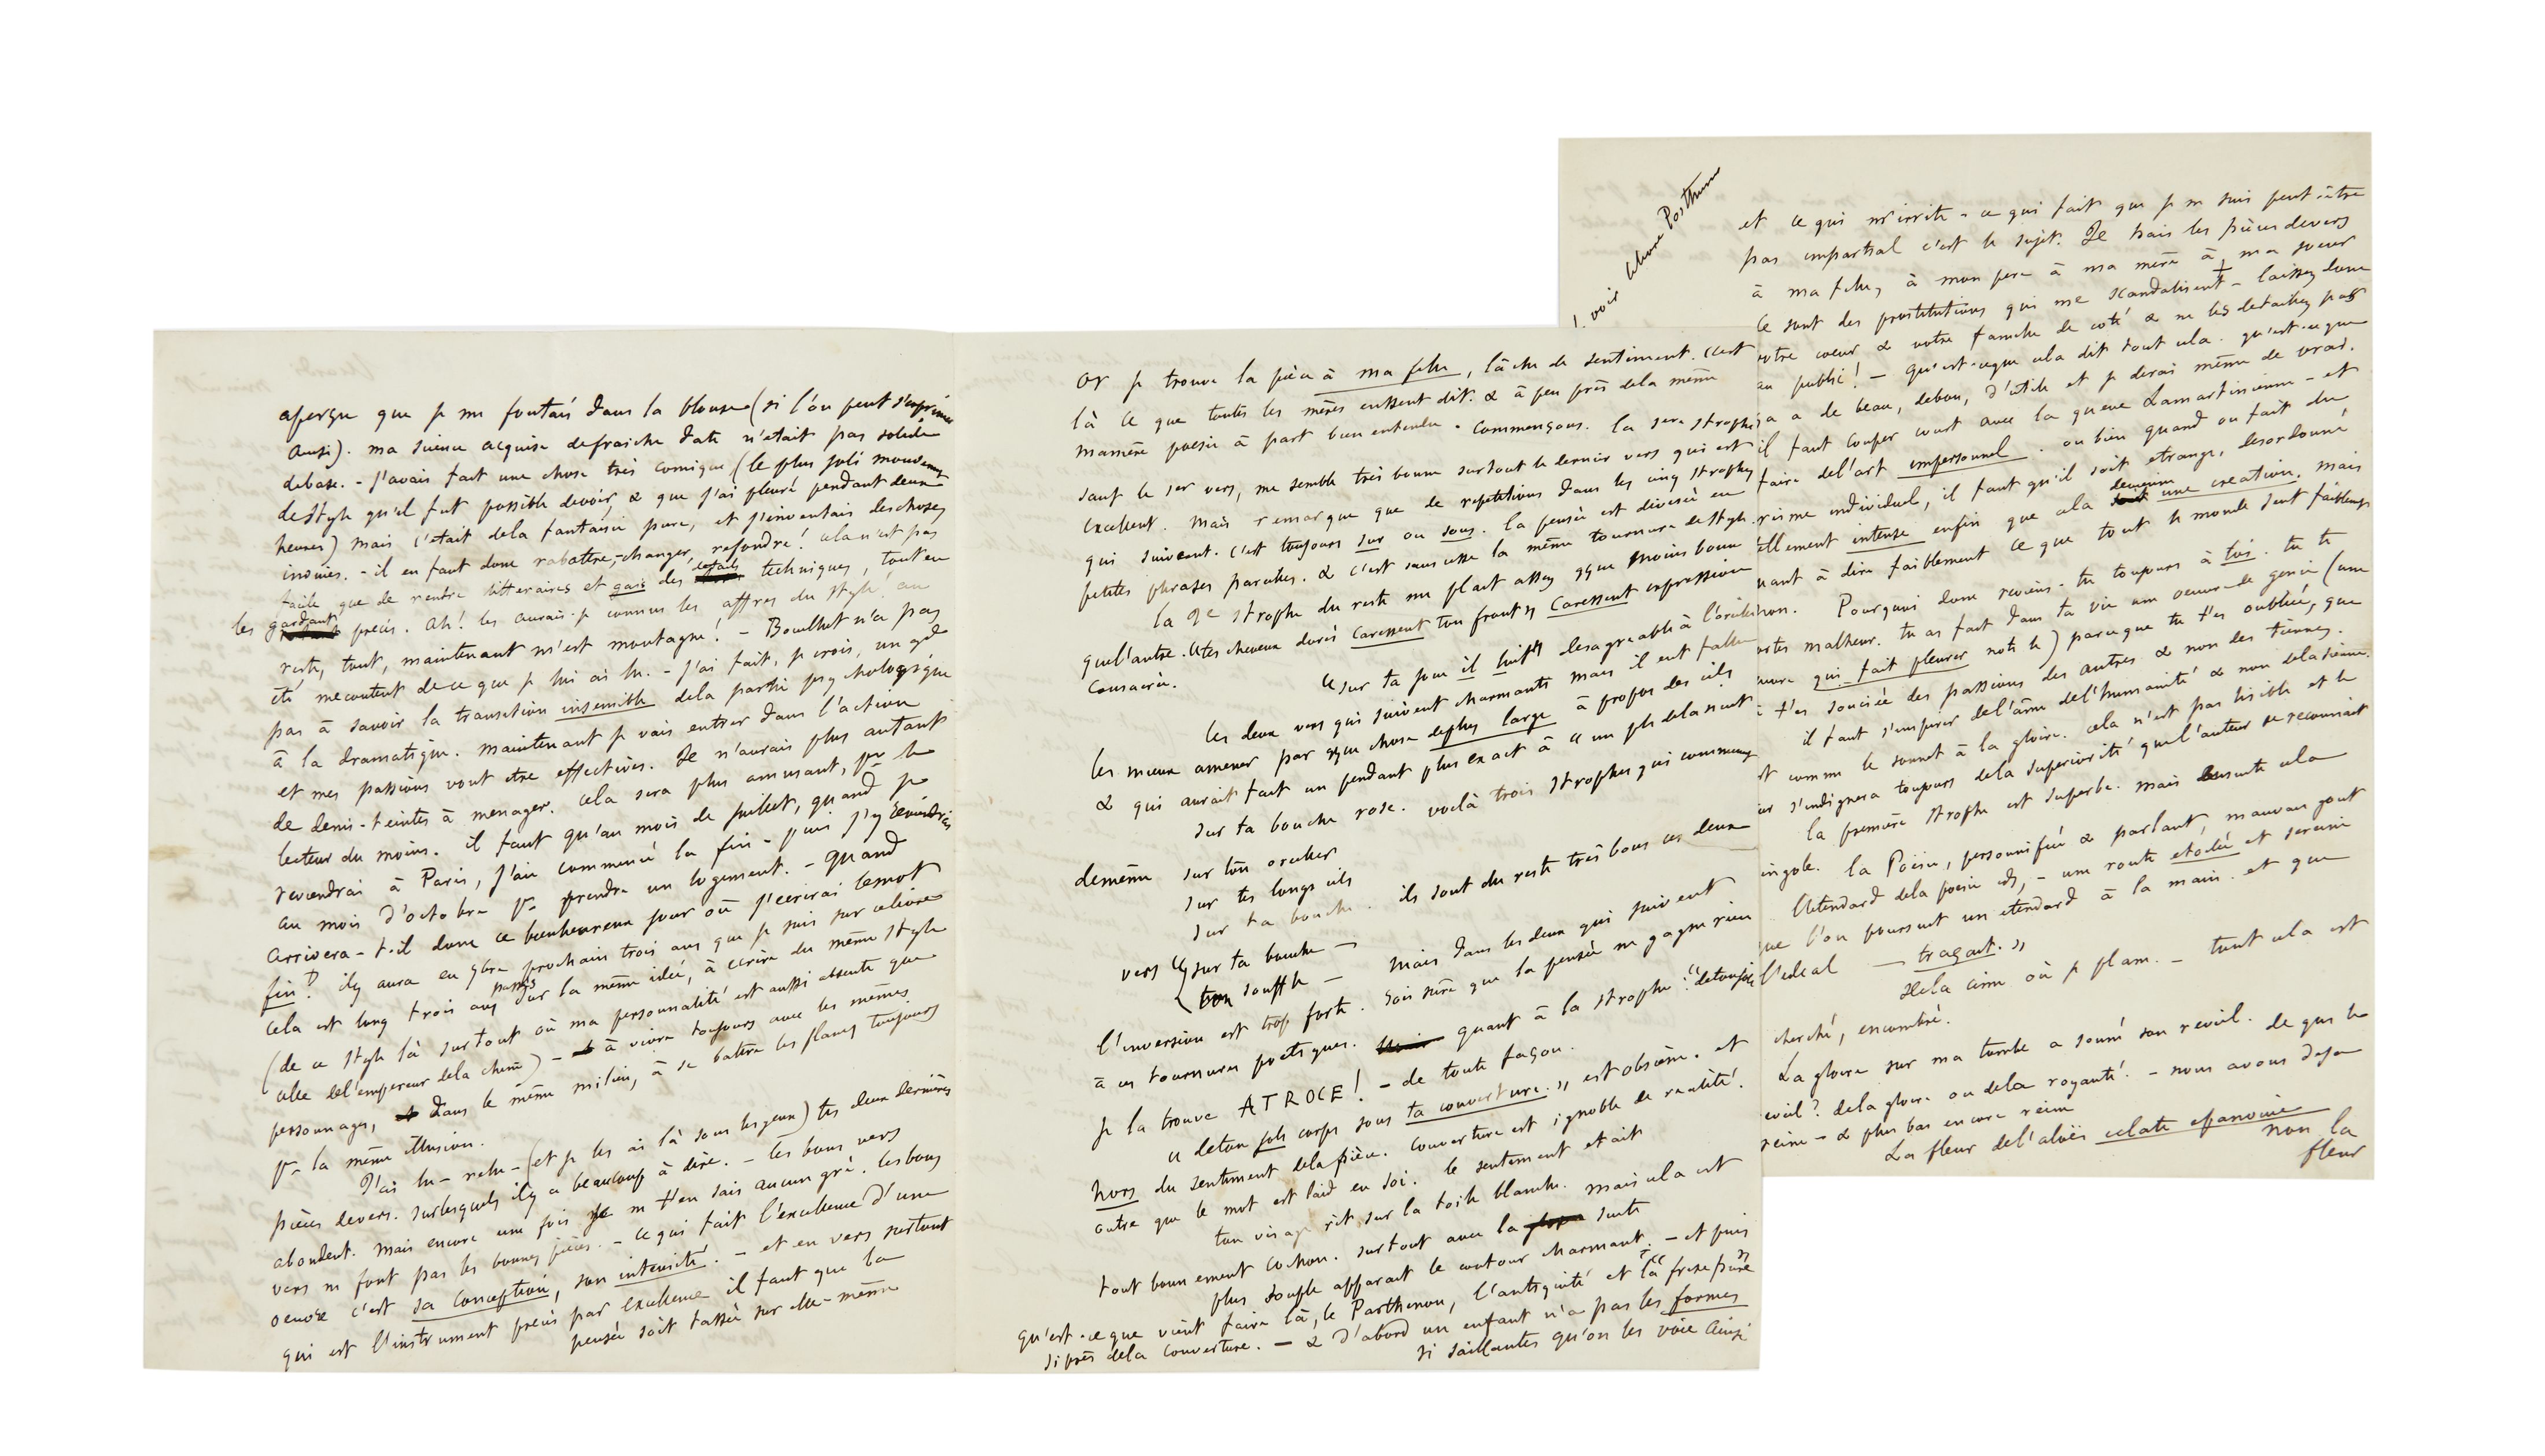 aperçu que je me foutais dans la blouse (si l'on peut s'exprimer
ainsi). ma science acquise defraiche date n'etait pas solide
debase. - J'avais fait une chose très comique (le plus joli mouvement
destyle qu'il fut possible devoir, & que j'ai pleuré pendant deux
heures) mais c'était dela fantaisie pure, et j'inventais deschoses
inouies. - il en faut donc rabattre, - changer, refondre! cela n'est pas
facile que de rendre litteraires et gais des details techniques, tout en
les gardant precis. Ah! les aurai-je connus les affres du style! au
reste, tout, maintenant m'est montagne! - Bouilhet n'a pas
été mecontent de ce que je lui ai lu. - J'ai fait, je crois, un gd
pas à savoir la transition insensible dela partie psychologique
à la dramatique. maintenant je vais entrer dans l'action
et mes passions vont etre effectives. Je n'aurai plus autant
de demi-teintes à menager. cela sera plus amusant, pr le
lecteur du moins. il faut qu'au mois de juillet, quand je
reviendrai à Paris, j'aie commencé la fin - puis j'y reviendrai
au mois d'octobre pr prendre un logement. - Quand
arrivera-t-il donc ce bienheureux jour où j'ecrirai lemot
fin? il y aura en 7bre prochain trois ans que je suis sur celivre
cela est long trois ans passés sur la même idée, à ecrire du même style
(de ce style là surtout où ma personnalité est aussi absente que
celle del'empereur dela chine) - à vivre toujours avec les mêmes
personnages, dans le même milieu, à se battre les flancs toujours
pr la même illusion.
J'ai lu - relu - (et je les ai là sous lesyeux) tes deux dernières
pièces devers. surlesquels il y a beaucoup à dire. - les bons vers
abondent. mais encore une fois je ne t'en sais aucun gré. les bons
vers ne font pas les bonnes pièces. - ce qui fait l'excellence d'une
oeuvre c'est sa conception, son intensité. - et en vers surtout
qui est l'instrument precis par excellence il faut que la
pensée soit tassée sur elle-même
Or je trouve la pièce à ma fille, lâche de sentiment. c'est
là ce que toutes les mères eussent dit. & à peu près dela même
manière poesie à part bien entendu. commençons. la 1ere strophe
sauf le 1er vers, me semble très bonne surtout le dernier vers qui est
excellent. mais remarque que de repetitions dans les cinq strophes
qui suivent. c'est toujours sur ou sous. la pensée est divisée en
petites phrases pareilles. & c'est sans cesse la même tournure destyle.
la 2e strophe du reste me plait assez qque moins bonne
quel'autre. «tes cheveux dorés caressent ton front» caressent expression
consacrée.
«sur ta joue il luit» desagreable à l'oreille
les deux vers qui suivent charmants mais il eut fallu
les mieux amener par qque chose deplus large à propos des cils
& qui aurait fait un pendant plus exact à «un pli dela nuit
sur ta bouche rose. voilà trois strophes qui commencent
demême sur ton oreiller
sur tes longs cils
sur ta bouche. ils sont du reste très bons ces deux
vers «sur ta bouche -
ton souffle - mais dans les deux qui suivent
l'inversion est trop forte. sois sûre que la pensée ne gagne rien
à ces tournures poetiques. quant à la strophe: «detonjoli
je la trouve ATROCE! - de toute façon.
«deton joli corps sous ta couverture.» est obscène. et
hors du sentiment dela pièce. couverture est ignoble de realité.
outre que le mot est laid en soi. le sentiment etait
ton visage rit sur la toile blanche. mais cela est
tout bonnement cochon. surtout avec la suite
plus souple apparait le contour charmant. - et puis
qu'est-ce que vient faire là, le Parthenon, l'antiquité et «la frise pure»
si près dela couverture. - & d'abord un enfant n'a pas les formes
si saillantes qu'on les voie ainsi
! voir uluve Posthume
et ce qui m'irrite - ce qui fait que je ne suis peut-être
pas impartial c'est le sujet. Je hais les pièces devers
à ma fille, à mon pere à ma mère à ma soeur
ce sont des prostitutions qui me scandalisent - laissez donc
votre coeur & votre famille de coté & ne les detaillez pas
au public! - qu'est-ceque cela dit tout cela. qu'est-ce que
ça a de beau, debon, d'utile et je dirai même de vrai.
il faut couper court avec la queue Lamartinienne - et
faire del'art impersonnel. ou bien quand on fait du
risme individuel, il faut qu'il soit etrange, desordonné,
ellement intense enfin que cela devienne une creation. mais
uant à dire faiblement ce que tout le monde sent faiblement
non. Pourquoi donc reviens-tu toujours à toi. tu te
ortes malheur. tu as fait dans ta vie une oeuvre de genie (une
uvre qui fait pleurer note le) parceque tu t'es oubliée, que
t'es souciée des passions des autres & non des tiennes.
il faut s'inspirer del'âme del'humanité & non delatienne.
t comme le sonnet à la gloire. cela n'est pas lisible et le
ur s'indignera toujours dela superiorité quel'auteur se reconnait
la première strophe est superbe. mais ensuite cela
ingole. la Poësie, personnifiée & parlant, mauvais gout
l'etendard dela poesie id, - une route etoilée et sereine
ue l'on poursuit un etendard à la main. et que
l'ideal - traçait.»
Dela cime où je plane. - tout cela est
cherché, encombré.
La gloire sur ma tombe a sonné son reveil. de qui le
eveil? dela gloire ou dela royauté. - nous avons deja
reine - & plus bas encore reine
La fleur del'aloës eclate epanouie
non la
fleur